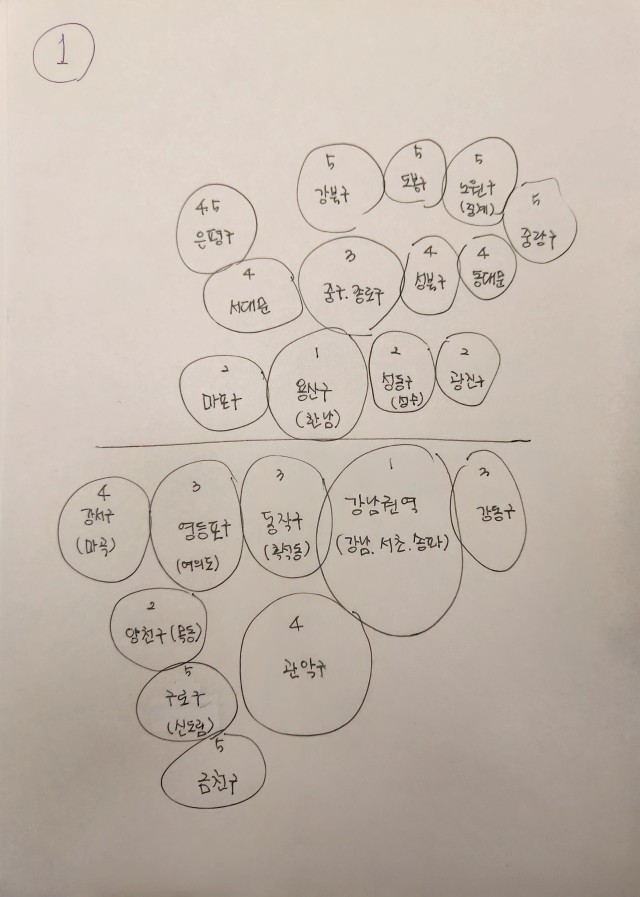 1
5
강북구
5
도봉구
5
노원구
(중계)
5
중랑구
4.5
은평구
4
서대문
3
중구.종로구
4
성북구
4
동대문
2
마포구
1
용산구
(한남)
2
성동구
(성수)
2
광진구
4
강서구
(마곡)
3
영등포구
(여의도)
3
동작구
(흑석동)
1
강남권역
(강남.서초.송파)
3
강동구
2
양천구(목동)
4
관악구
5
구로구
(신도림)
5
금천구